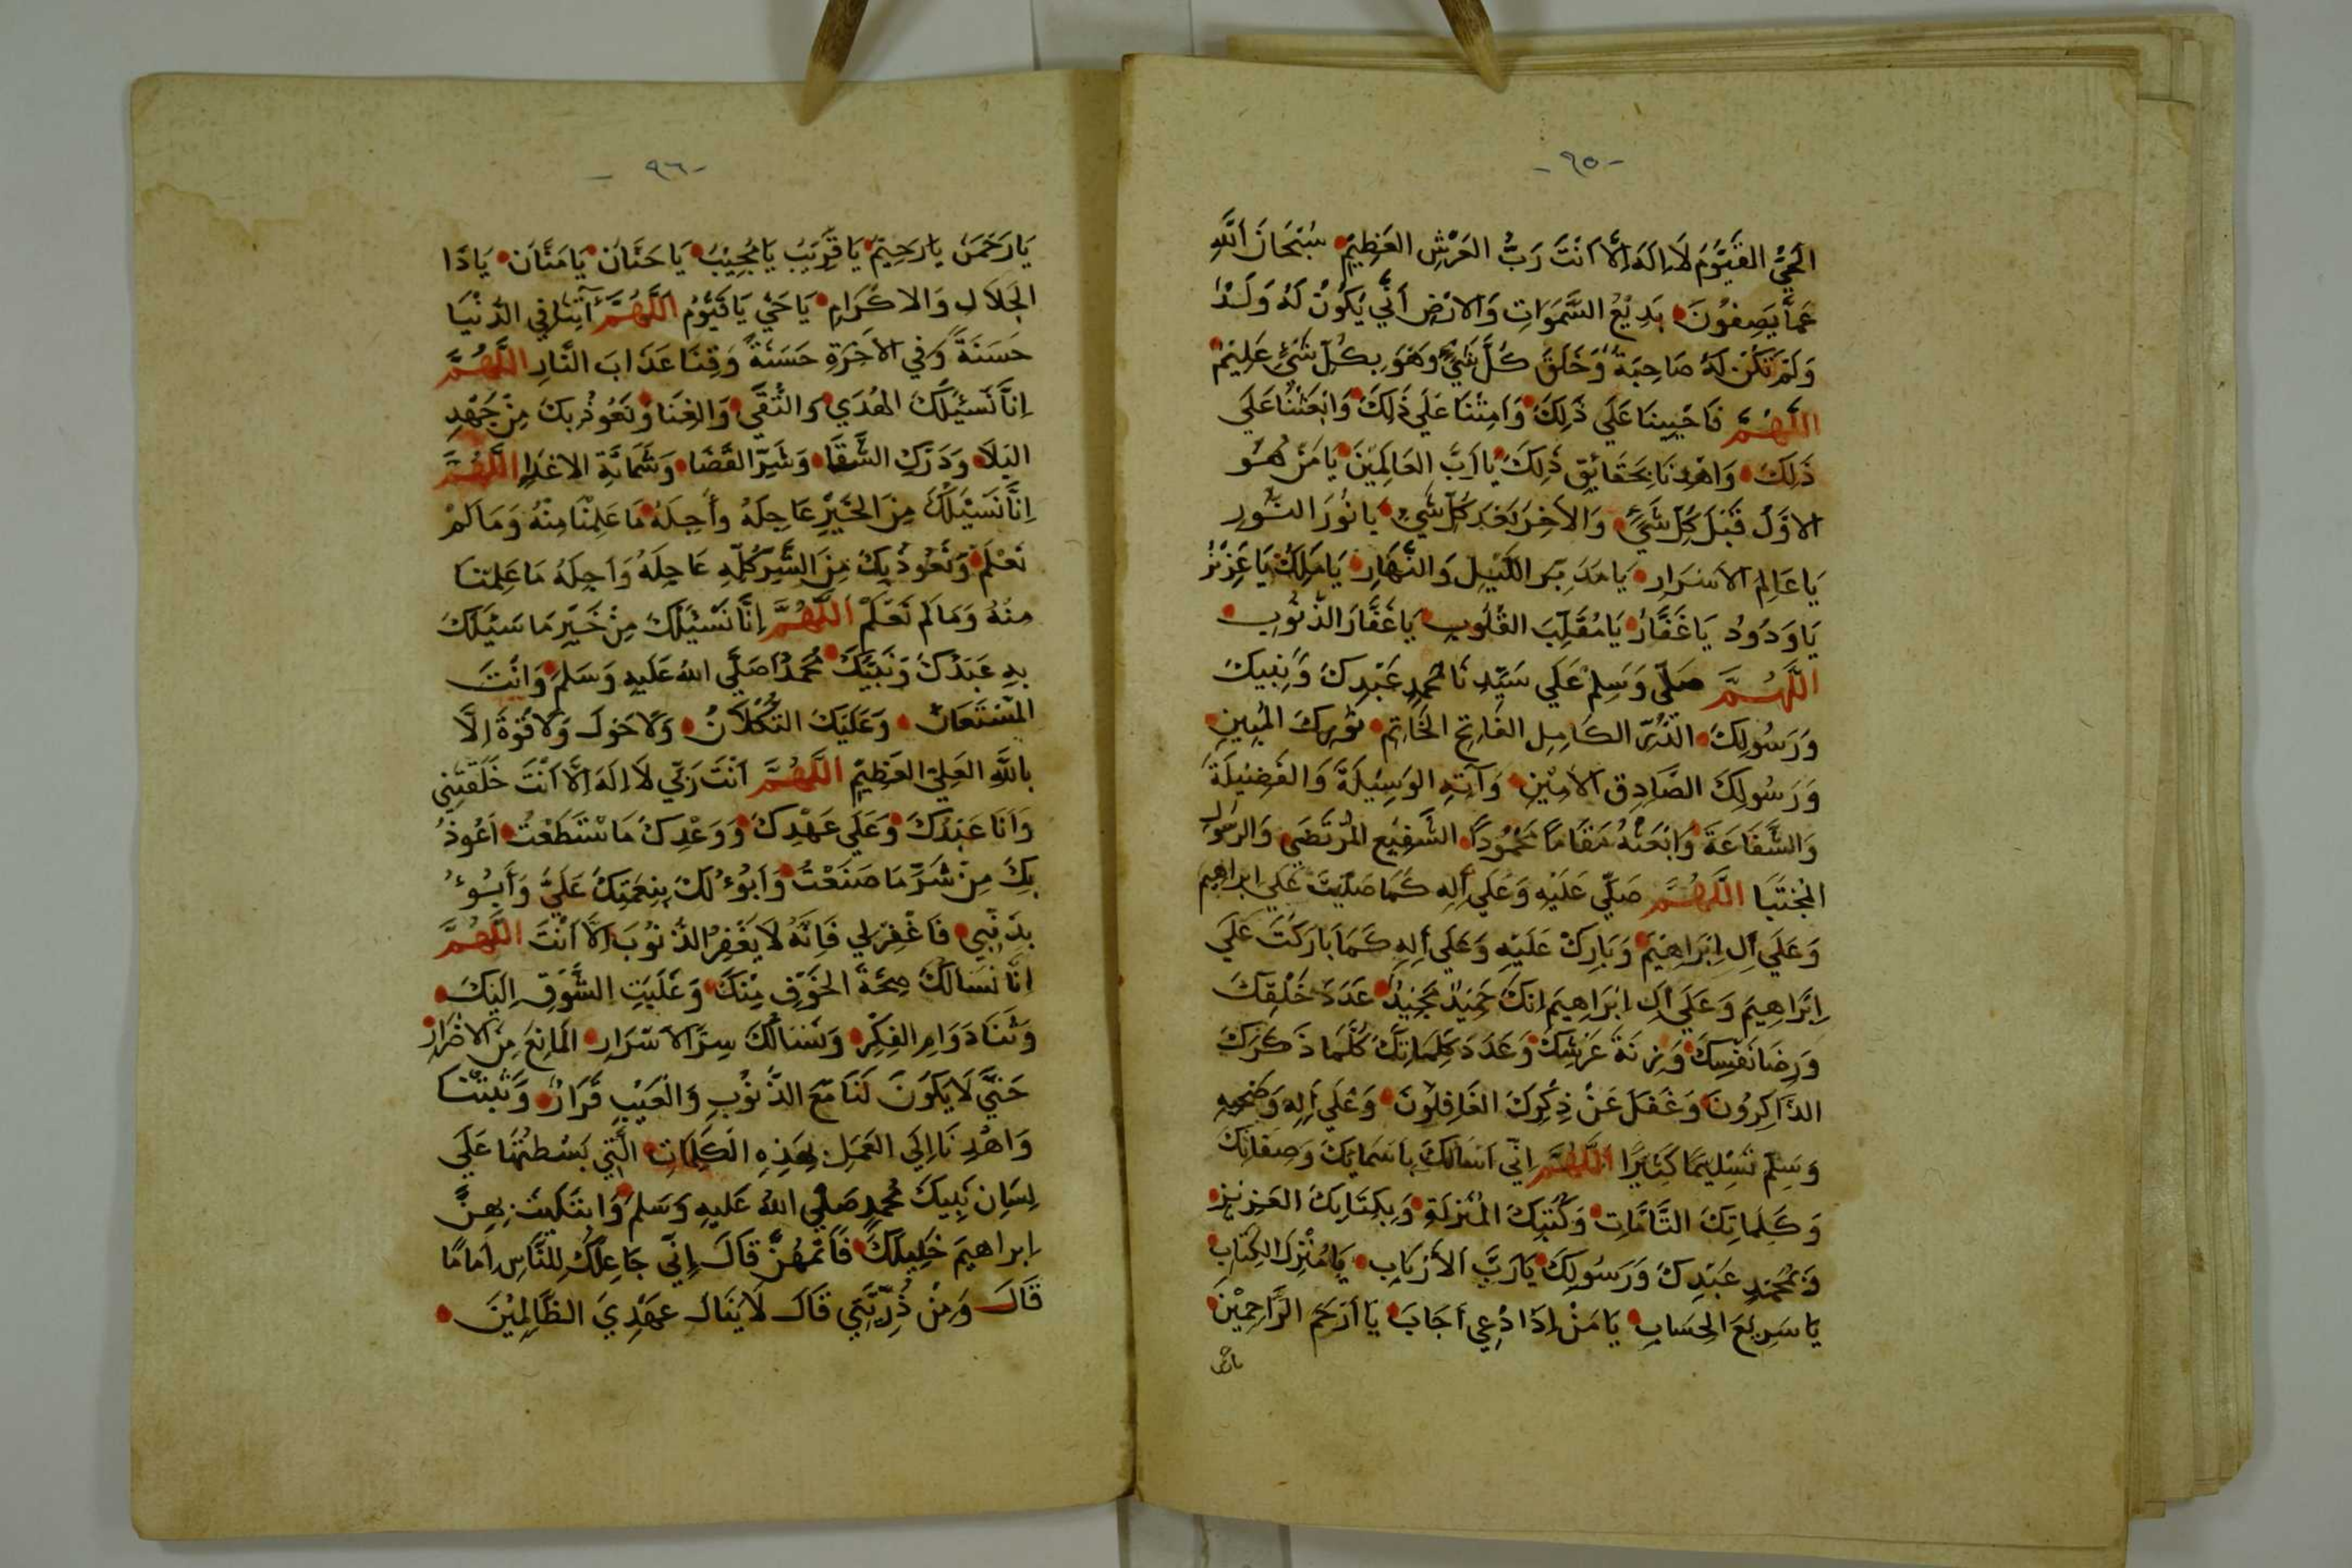 -٩٥-
الحَيُّ القَيُّومُ لَا اِلَهَ اِلَّا اَنْتَ رَبُّ العَرْشِ العَظِيمِ سُبْحَانَ اللّٰهِ
عَمَّا يَصِفُونَ بَدِيْعُ السَّمَوَاتِ وَالاَرْضِ اَنَّي يَكُوُنُ لَهُ وَلَدٌ
وَلَمْ تَكُنْ لَهُ صَاحِبَةٌ وَخَلَقَ كُلَّ شَيْءٍ وَهُوَ بِكُلِّ شَيْءٍ عَلِيْمٌ
اللَّهُمَّ فَاحْيِينَا عَلَي ذَلِكَ وَاَمِتْنَا عَلَي ذَلِكَ وَابْعَثْنَا عَلَي
ذَلِكَ وَاهْدِنَا بِحَقَايِقِ ذَلِكَ يَا رَبَّ العَالَمِيْنَ يَا مَنْ هُوَ
الاوَّلُ قَبْلَ كُلِّ شَيْءٍ وَالاَخِرُ بَعْدَ كُلِّ شَيْءٍ يَا نُوُرَ النُّورِ
يَا عَالِمَ الاَسْرَارِ يَا مُدَبِّرَ اللَّيْلِ وَالنَّهَارِ يَا مَلِكُ يَا عَزِيْزُ
يَا وَدُوُدُ يَا غَفَّارُ يَا مُقَلِّبَ القُلُوبِ يَا غَفَّارَ الذُّنُوبِ
اللَّهُمَّ صَلِّي وَسَلِّمْ عَلَي سَيِّدِنَا مُحَمَّدٍ عَبْدِكَ وَنَبِيكَ
وَرَسُولِكَ الذُّرِّ الكَامِلِ الفَاتِحِ الخَاتِمِ نُوُرِكَ المُبِينِ
وَرَسُولِكَ الصَّادِقِ الاَمِيْنِ وَآتِهِ الوَسِيْلَةَ وَالفَضِيْلَةَ
وَالشَّفَاعَةَ وَابْعَثْهُ مَقَامًا مَحْمُوُدًا الشَّفِيْعِ المُرْتَضَى وَالرَسُولِ
المُجْتَبَا اللَّهُمَّ صَلِّي عَلَيْهِ وَعَلَي أَلِهِ كَمَا صَلَّيْتَ عَلَي ابراهيم
وَعَلَي أَلِ اِبْرَاهِيْمَ وَبَارِكْ عَلَيْهِ وَعَلَي أَلِهِ كَمَا بَارَكْتَ عَلَي
اِبْرَاهِيمَ وَعَلَي أَلِ اِبْرَاهِيمَ اِنَّكَ حَمِيْدٌ مَجِيْدٌ عَدَدَ خَلْقِكَ
وَرِضَا نَفْسِكَ وَزِنَةَ عَرْشِكَ وَعَدَدَ كَلِمَاتِكَ كُلَّمَا ذَكَرَكَ
الذَّاكِرُونَ وَغَفَلَ عَنْ ذِكْرِكَ الغَافِلُوْنَ وَعَلَي أَلِهِ وَصَحْبِهِ
وَسَلِّمْ تَسْلِيمًا كَثِيْرًا اللَّهُمَّ اِنِّي اَسَالُكَ بِاسْمَايِكَ وَصِفَاتِكَ
وَكَلِمَاتِكَ التَّامَّاتِ وَكُتُبِكَ المُنْزَلَةِ وَبِكِتَابِكَ العَزِيْزِ
وَبِمُحَمَّدٍ عَبْدِكَ وَرَسُولِكَ يَا رَبَّ الاَرْبَابِ يَا مُنْزِلَ الكِتَابِ
يَا سَرِيعَ الحِسَابِ يَا مَنْ اِذَا دُعِي اَجَابَ يَا اَرْحَمَ الرَّاحِمِيْنَ
-٩٦-
يَا رَحْمَنُ يَا رَحِيْمُ يَا قَرِيْبُ يَا مُجِيْبُ يَا حَنَّانُ يَا مَنَّانُ يَا ذَا
الجَلاَلِ وَالاكْرَامِ يَا حَيُ يَا قَيُّومُ اَللَّهُمَّ اَتِنَا فِي الدُّنْيَا
حَسَنَةً وَفِي الاَخِرَةِ حَسَنَةً وَقِنَا عَذَابَ النَّارِ اللَّهُمَّ
اِنَّا نَسْئَلُكَ الهُدَي وَالتُّقَي وَالغِنَا وَنَعُوذُ بِكَ مِنْ جَهْدِ
البَلَا وَدَرْكِ الشَّقَا وَشَرِّ القَضَا وَشَمَاتَةِ الاعْدَا اللَّهُمَّ
اِنَّا نَسْئَلُكَ مِنَ الخَيْرِ عَاجِلَهُ وأَجِلَهُ مَا عَلِمْنَا مِنْهُ وَمَا لَمْ
نَعْلَمْ وَنَعُوْذُ بِكَ مِنَ الشَّرِ كُلِّهِ عَاجِلَهُ وَاَجِلَهُ مَا عَلِمْنَا
مِنْهُ وَمَا لَمْ نَعْلَمْ اَللَّهُمَّ اِنَّا نَسْئَلُكَ مِنْ خَيْرِ مَا سَئَلَكَ
بِهِ عَبْدُكَ وَنَبِيُّكَ مُحَمَّدٌ صَلَّي اللهُ عَلَيهِ وَسَلَمَ وَاَنْتَ
المُسْتَعَانُ وَعَلَيْكَ التُكْلَانُ وَلَا حَوْلَ وَلَا قُوَّةَ اِلَّا
بِاللَّهِ العَلِيِّ العَظِيْمِ اَللَّهُمَّ اَنْتَ رَبِّي لَا اِلَهَ اِلَّا اَنْتَ خَلَقْتَنِي
وَاَنَا عَبْدُكَ وَعَلَي عَهْدِكَ وَوَعْدِكَ مَاسْتَطَعْتُ اَعُوذُ
بِكَ مِنْ شَرِّ مَا صَنَعْتُ وَاَبُوْءُ لَكَ بِنِعْمَتِكَ عَلَيَّ وَأَبُوءُ
بِذَنْبِي فَاغْفِرْ لِي فَاِنَّهُ لَا يَغْفِرُ الذُّنُوْبَ اِلَّا اَنْتَ اللَّهُمَّ
اِنَّا نَسَالُكَ صِحَّةَ الخَوْفِ مِنْكَ وَغَلَبَتِ الشَّوْقِ اِلَيْكَ
وَثَنَا دَوَامِ الفِكْرِ وَنَسَالُكَ سِرَّ الاَسْرَارِ المَانِعَ مِنَ الاضْرَارِ
حَتَّي لَا يَكُوْنَ لَنَا مَعَ الذُّنُوْبِ وَالْعَيْبِ قَرَارٌ وَثَبِّتْنَا
وَاهْدِنَا اِلَي العَمَلِ بِهَذِهِ الْكَلِمَاتِ الَّتِي بَسْطتَهَا عَلَي
لِسَانِ نَبِيكَ مُحَمدٍ صَلَّي اللهُ عَلَيهِ وَسَلَمَ وَابْتَلَيْتَ بِهِنَّ
اِبراهيمَ خَلِيلَكَ فَاَتَمَهُنَّ قَالَ اِنِّي جَاعِلُكَ لِلنَّاسِ اِمَامًا
قَالَ وَمِنْ ذُرِّيَّتِي قَالَ لَا يَنَالُ عَهْدِيَ الظَّالِمِيْنَ